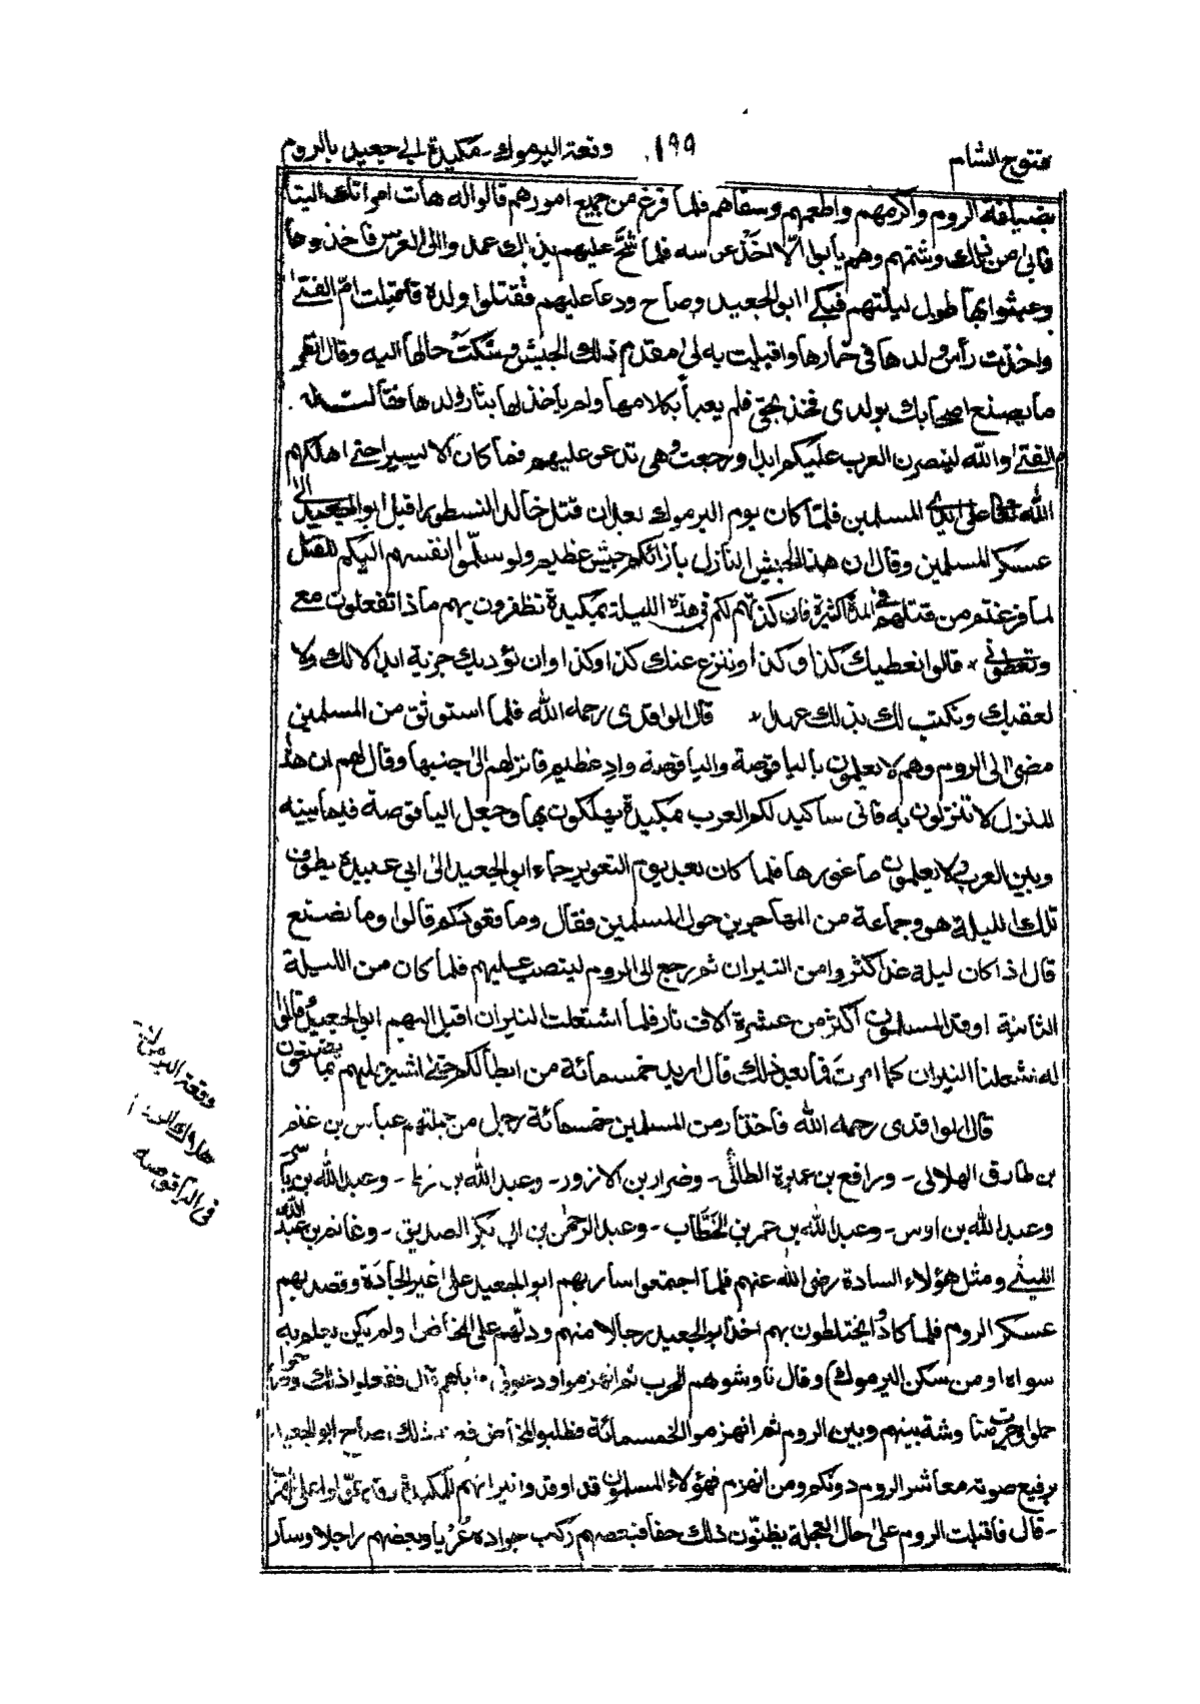 فتوح الشام ١٩٩ وقعة اليرموك - مكيدة ابي جعيد بالروم
بضيافة الروم واكرمهم واطعمهم وسقاهم فلما فرغ من جميع امورهم قالوا له هات امراتك الينا
فابى من ذلك وشتمهم وهم يأبوا الا اخذ عرسه فلما شح عليهم بذلك عمدوا الى العرس فاخذوها
وعبثوا بها طول ليلتهم فبكى ابو الجعيد وصاح ودعا عليهم فقتلوا ولده فاقبلت ام الفتى
واخذت رأس ولدها في خمارها واقبلت به الى مقدم ذلك الجيش وشكت حالها اليه وقال انظر
ما يصنع اصحابك بولدى فخذ بحقي فلم يعبأ بكلامها ولم يأخذ لها بثار ولدها فقالت له
ام الفتى والله لينصرن العرب عليكم ابدا ورجعت وهي تدعو عليهم فما كان الا يسيرا حتى اهلكهم
الله تعالى على ايدى المسلمين فلما كان يوم اليرموك بعد ان قتل خالد النسطور اقبل ابو الجعيد الى
عسكر المسلمين وقال ان هذا الجيش النازل بازائكم جيش عظيم ولو سلموا انفسهم اليكم للقتل
لما فرغتم من قتلهم في المدة الكثيرة فان كدتهم لكم في هذه الليلة بمكيدة تظفرون بهم ماذا تفعلون معي
وتعطوني * قالوا نعطيك كذا وكذا وننزع عنك كذا وكذا وان نؤديك جزية ابدا لا لك ولا
لعقبك ونكتب لك بذلك عهدا * قال الواقدى رحمه الله فلما استوثق من المسلمين
مضى الى الروم وهم لا يعلمون بالياقوصة والياقوصة واد عظيم فانزلهم الى جنبها وقال لهم ان هذا
المنزل لا تنزلون به فانى ساكيد لكم العرب مكيدة يهلكون بها وجعل الياقوصة فيما بينه
وبين العرب ولا يعلمون ما غورها فلما كان بعد يوم التعوير جاء ابو الجعيد الى ابي عبيدة يطوف
تلك الليلة هو وجماعة من المهاجرين حول المسلمين فقال وما قعودكم قالوا وما نصنع
قال اذا كان ليلة غد اكثروا من النيران ثم رجع الى الروم لينصب عليهم فلما كان من الليلة
الثانية اوقد المسلمون اكثر من عشرة آلاف نار فلما اشتعلت النيران اقبل اليهم ابو الجعيد قالوا
له نشعلنا النيران كما امرت فما بعد ذلك قال اريد خمسمائة من ابطالكم حتى اشير عليهم بما يصنعون
قال الواقدى رحمه الله فاختار من المسلمين خمسمائة رجل من جملتهم عباس بن غنم
بن طارق الهلالى - ورافع بن عميرة الطائى - وضرار بن الازور - وعبد الله بن
وعبد الله بن اوس - وعبد الله بن عمر بن الخطاب - وعبد الرحمن بن ابي بكر الصديق - وغانم بن عبد الله
الليثى ومثل هؤلاء السادة رضى الله عنهم فلما اجتمعوا سار بهم ابو الجعيد على غير الجادة وقصد بهم
عسكر الروم فلما كادوا يختلطون بهم اخذ ابو الجعيد رجالا منهم ودلهم على المخاض ولم يكن يعلم به
سواه او من سكن اليرموك) وقال ناوشوهم الحرب ثم انهزموا ففعلوا ذلك
حملوا وجرت مناوشة بينهم وبين الروم ثم انهزموا الخمسمائة فطلبوا المخاض صاح ابو الجعيد
برفيع صوته معاشر الروم دونكم ومن انهزم فهؤلاء المسلمون قد اوقدوا نيرانهم للمكيدة
- قال فاقبلت الروم على حال العجلة يظنون ذلك حقا فبعضهم ركب جواده عريا وبعضهم راجلا وسار
وقعة اليرموك
هلاك الروم
في الياقوصة